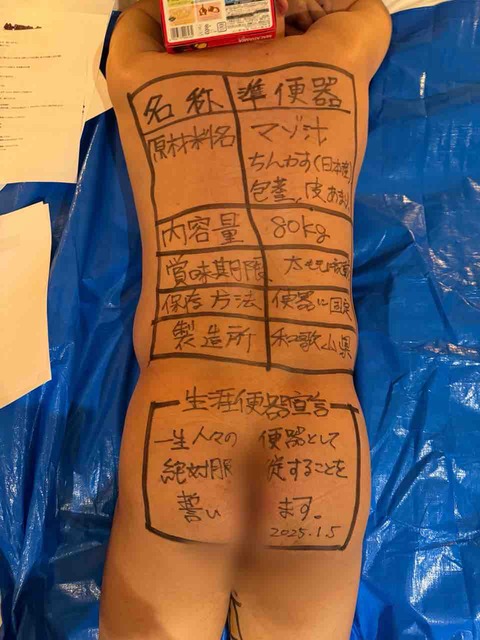 名称 準便器
原材料名 マゾ汁
ちんかす(日本産)
包茎、皮あまり
内容量 80kg
賞味期限
保存方法 便器に固定
製造所 和歌山県
生涯便器宣言
一生人々の便器として
絶対服従することを
誓います。
2025.1.5